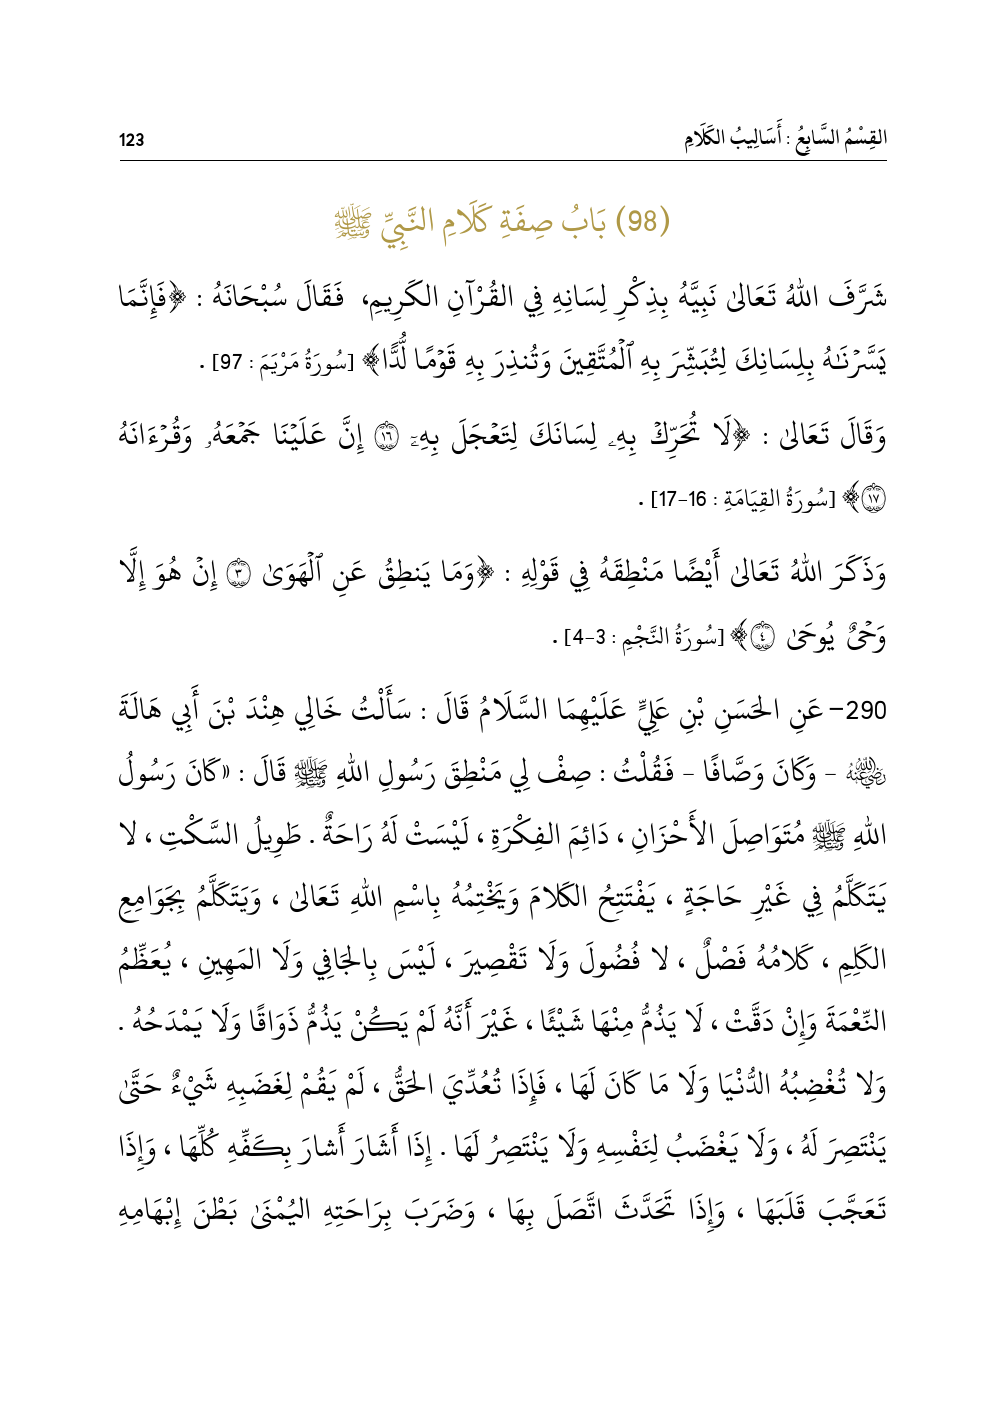 القِسْمُ السَّابِعُ : أَسَالِيبُ الكَلَامِ 123
(98) بَابُ صِفَةِ كَلَامِ النَّبِيِّ ﷺ
شَرَّفَ اللهُ تَعَالىٰ نَبِيَّهُ بِذِكْرِ لِسَانِهِ فِي القُرْآنِ الكَرِيمِ، فَقَالَ سُبْحَانَهُ : ﴿فَإِنَّمَا
يَسَّرْنَـٰهُ بِلِسَانِكَ لِتُبَشِّرَ بِهِ ٱلْمُتَّقِينَ وَتُنذِرَ بِهِ قَوْمًا لُّدًّا﴾ [سُورَةُ مَرْيَمَ : 97] .
وَقَالَ تَعَالىٰ : ﴿لَا تُحَرِّكْ بِهِۦ لِسَانَكَ لِتَعْجَلَ بِهِۦٓ ۝١٦ إِنَّ عَلَيْنَا جَمْعَهُۥ وَقُرْءَانَهُ
۝١٧﴾ [سُورَةُ القِيَامَةِ : 16-17] .
وَذَكَرَ اللهُ تَعَالىٰ أَيْضًا مَنْطِقَهُ فِي قَوْلِهِ : ﴿وَمَا يَنطِقُ عَنِ ٱلْهَوَىٰ ۝٣ إِنْ هُوَ إِلَّا
وَحْىٌ يُوحَىٰ ۝٤﴾ [سُورَةُ النَّجْمِ : 3-4] .
290- عَنِ الحَسَنِ بْنِ عَلِيٍّ عَلَيْهِمَا السَّلَامُ قَالَ : سَأَلْتُ خَالِي هِنْدَ بْنَ أَبِي هَالَةَ
رَضِيَ اللهُ عَنْهُ - وَكَانَ وَصَّافًا - فَقُلْتُ : صِفْ لِي مَنْطِقَ رَسُولِ اللهِ ﷺ قَالَ : «كَانَ رَسُولُ
اللهِ ﷺ مُتَوَاصِلَ الأَحْزَانِ ، دَائِمَ الفِكْرَةِ ، لَيْسَتْ لَهُ رَاحَةٌ . طَوِيلُ السَّكْتِ ، لا
يَتَكَلَّمُ فِي غَيْرِ حَاجَةٍ ، يَفْتَتِحُ الكَلامَ وَيَخْتِمُهُ بِاسْمِ اللهِ تَعَالىٰ ، وَيَتَكَلَّمُ بِجَوَامِعِ
الكَلِمِ ، كَلامُهُ فَصْلٌ ، لا فُضُولَ وَلَا تَقْصِيرَ ، لَيْسَ بِالجَافِي وَلَا المَهِينِ ، يُعَظِّمُ
النِّعْمَةَ وَإِنْ دَقَّتْ ، لَا يَذُمُّ مِنْهَا شَيْئًا ، غَيْرَ أَنَّهُ لَمْ يَكُنْ يَذُمُّ ذَوَاقًا وَلَا يَمْدَحُهُ .
وَلا تُغْضِبُهُ الدُّنْيَا وَلَا مَا كَانَ لَهَا ، فَإِذَا تُعُدِّيَ الحَقُّ ، لَمْ يَقُمْ لِغَضَبِهِ شَيْءٌ حَتَّىٰ
يَنْتَصِرَ لَهُ ، وَلَا يَغْضَبُ لِنَفْسِهِ وَلَا يَنْتَصِرُ لَهَا . إِذَا أَشَارَ أَشارَ بِكَفِّهِ كُلِّهَا ، وَإِذَا
تَعَجَّبَ قَلَبَهَا ، وَإِذَا تَحَدَّثَ اتَّصَلَ بِهَا ، وَضَرَبَ بِرَاحَتِهِ اليُمْنَىٰ بَطْنَ إِبْهَامِهِ